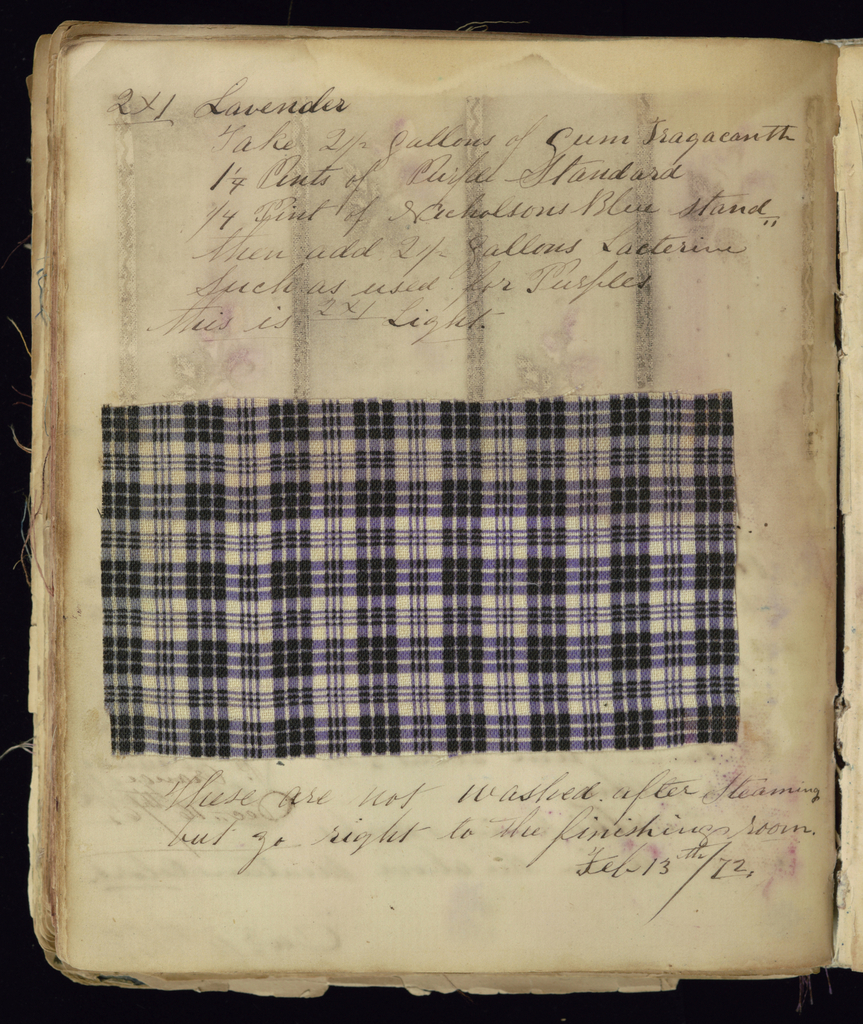 2X1 Lavender
Take 2 1/2 gallons of Gum Tragacanth
1 1/4 Pints of Purple Standard
1/4 Pint of Nicholsons Blue stand"
then add 2 1/2 gallons Lacterine
Such as used for Purples
this is 2X1 Light.
These are not washed after Steaming
but go right to the finishing room.
Feb 13th/72.